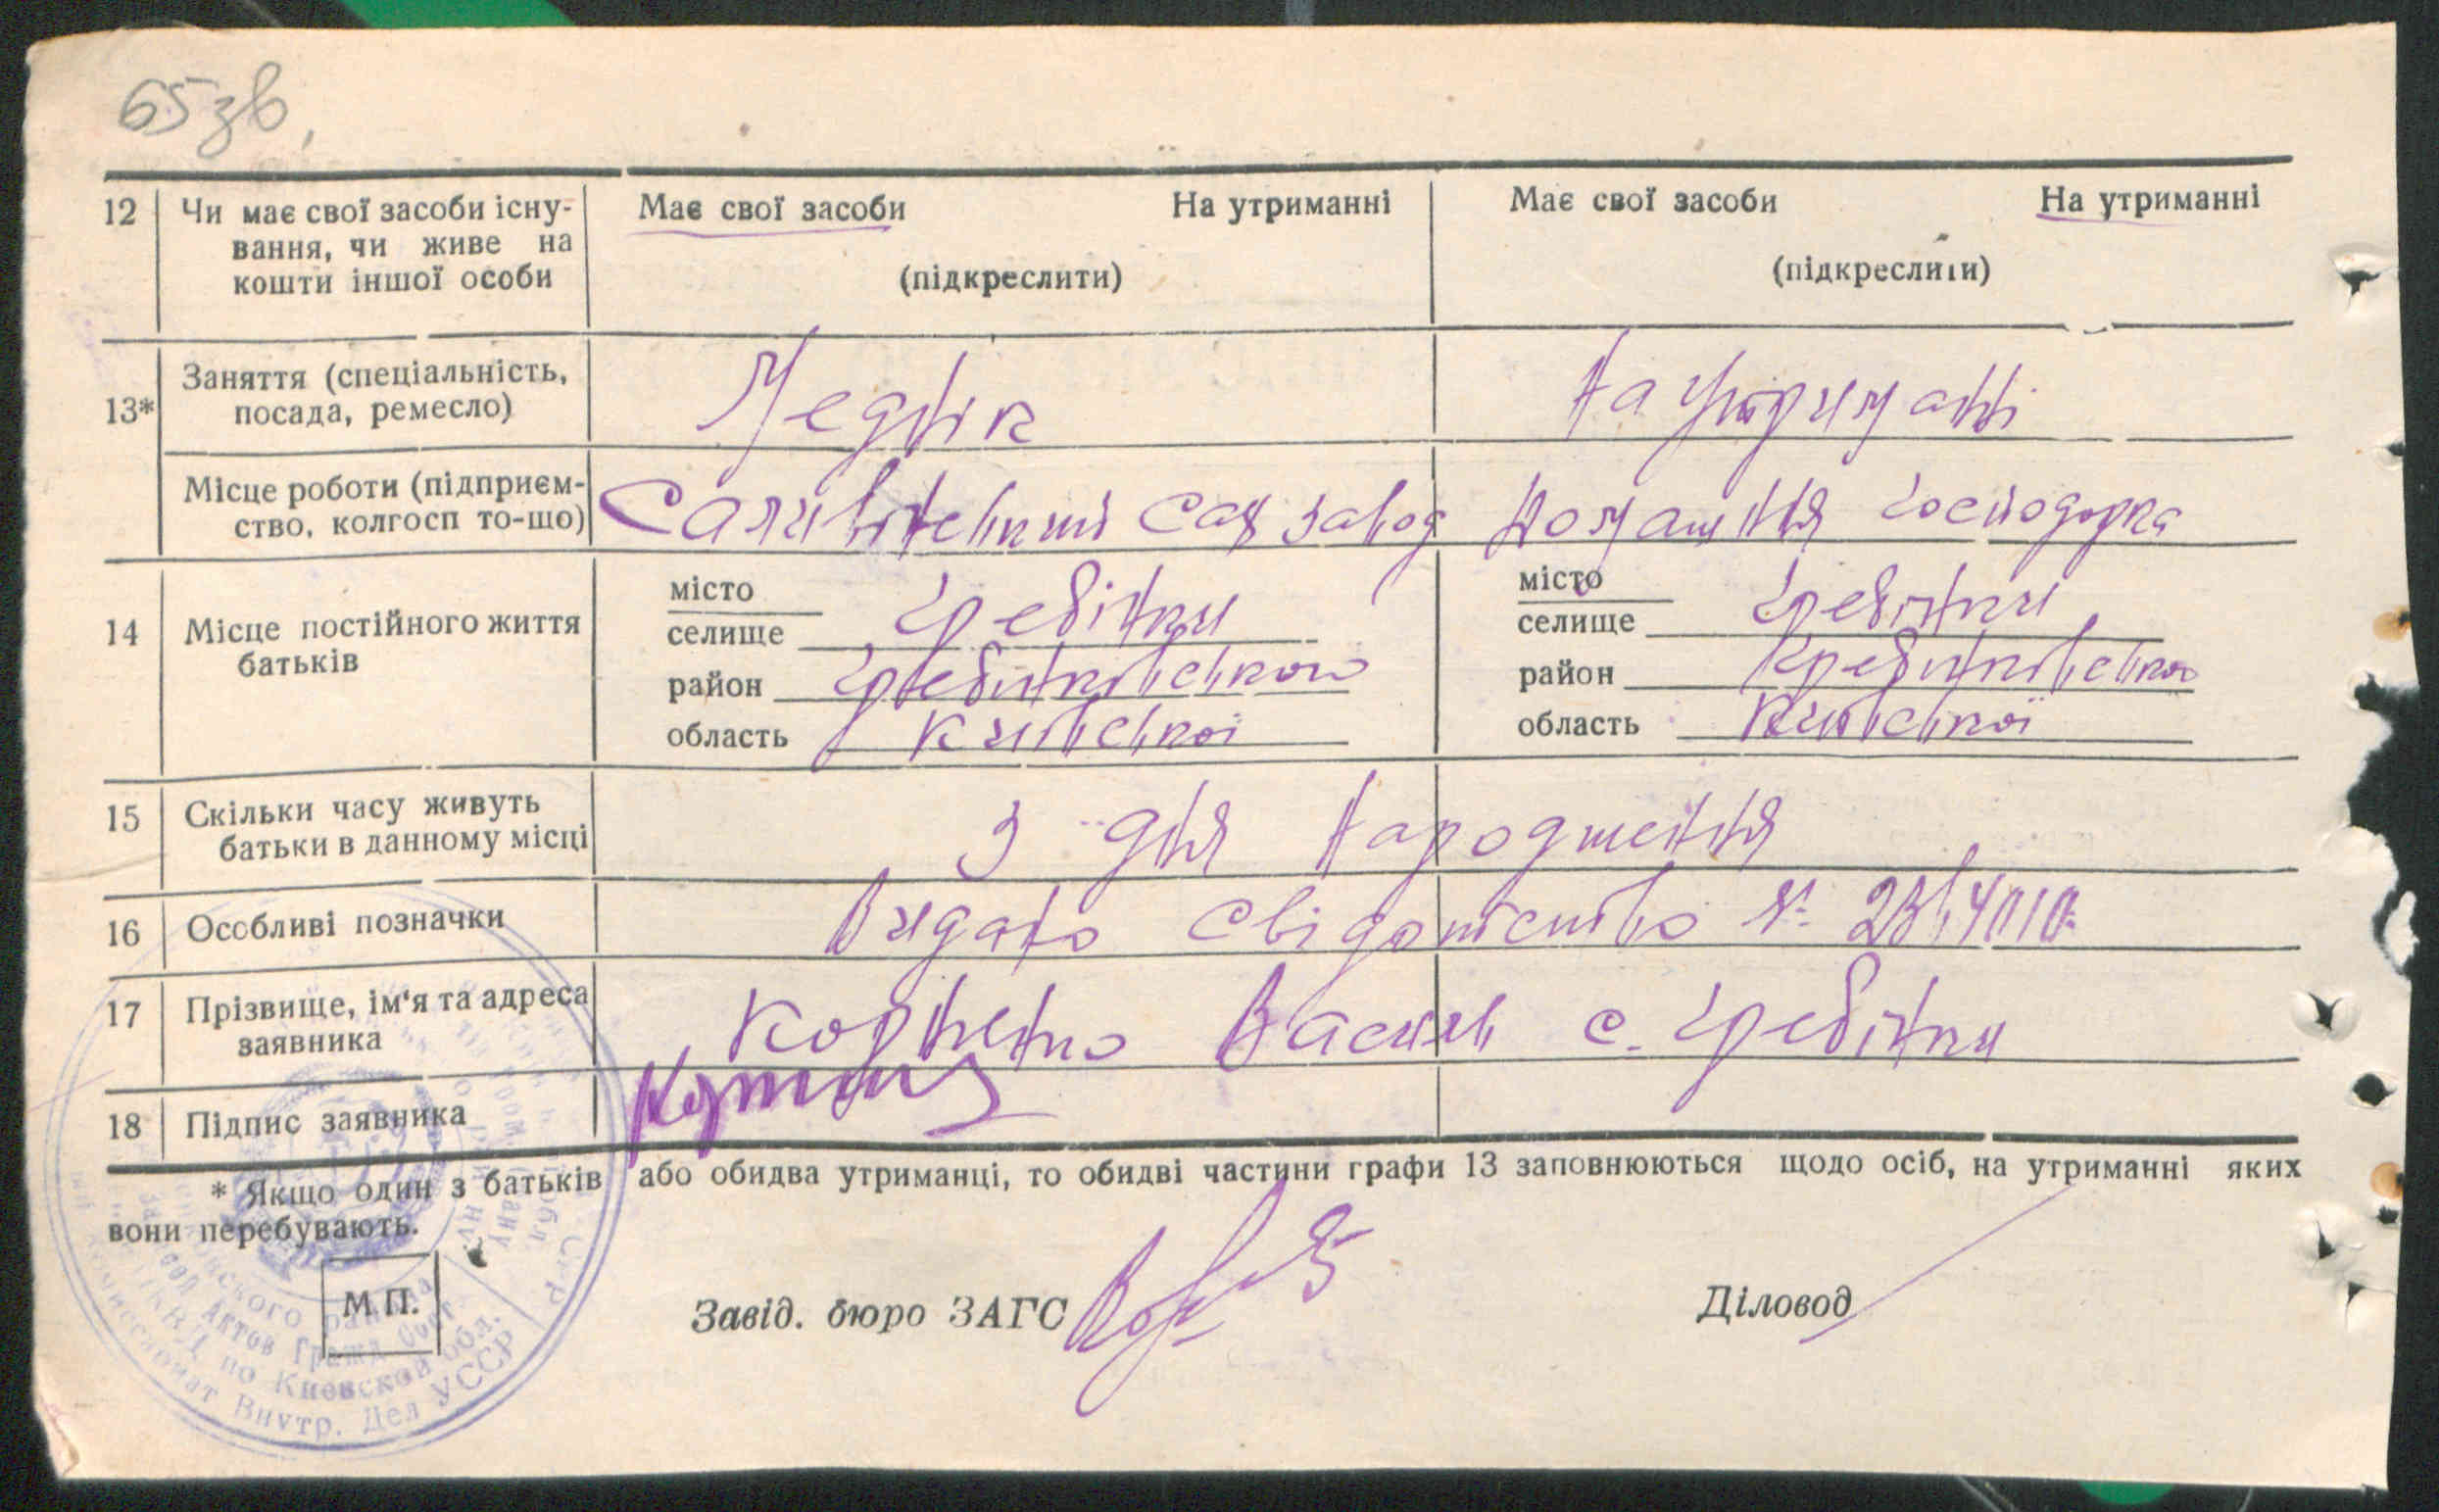 65 зв,
12 Чи має свої засоби існу- Має свої засоби На утриманні Має свої засоби На утриманні
вання, чи живе на
кошти іншої особи (підкреслити) (підкреслити)
13* Заняття (спеціальність, посада, ремесло) Меднік На утриманні
Місце роботи (підприєм-
ство, колгосп то-що) Саливінський Сах завод Домашня господарка
14 Місце постійного життя батьків
місто селище Гребінки місто селище Гребінки
район Гребінківського район Гребінківсько
область Київської область Київської
15 Скільки часу живуть
батьки в данному місці З дня народження
16 Особливі позначки Видано свідотство №
17 Прізвище, ім'я та адреса
заявника Корнієнко Василь с. Гребінки
18 Підпис заявника
* Якщо один з батьків або обидва утриманці, то обидві частини графи 13 заповнюються щодо осіб, на утриманні яких
вони перебувають.
М.П.
Завід. бюро ЗАГС Діловод
Актов Гражд.
НКВД по Киевской обл.
Комиссариат Внутр. Дел УССР